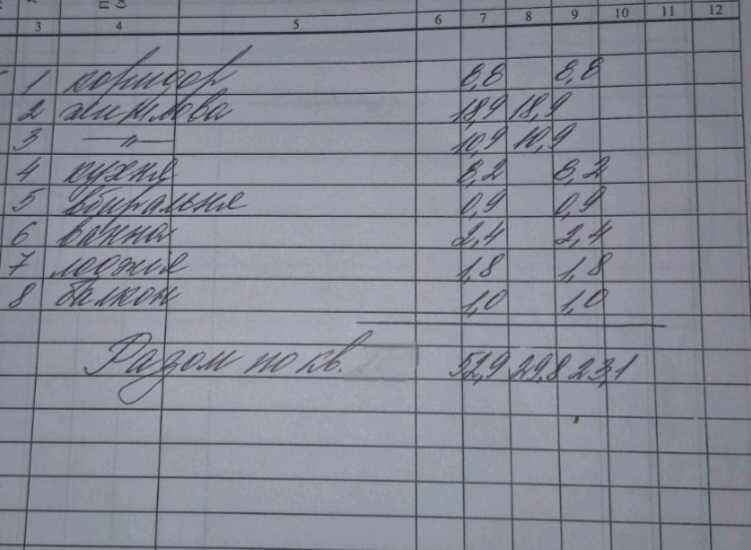 3 4 5 6 7 8 9 10 11 12
1 коридор 8,8 8,8
2 житлова 18,9 18,9
3 —〃— 10,9 10,9
4 кухня 8,2 8,2
5 вбиральня 0,9 0,9
6 ванна 2,4 2,4
7 лоджія 1,8 1,8
8 балкон 1,0 1,0
Разом по кв. 52,9 29,8 23,1